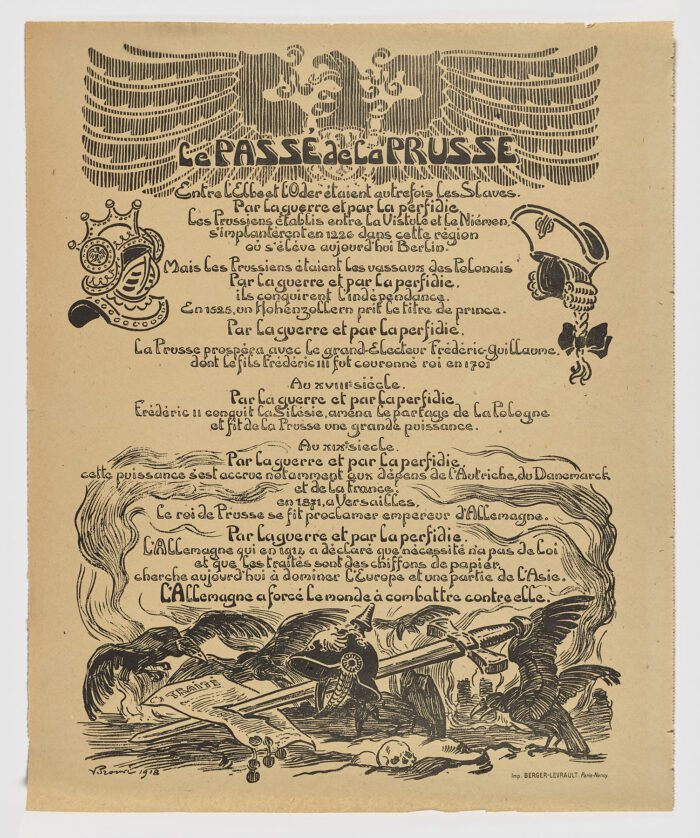 Le PASSÉ de La PRUSSE
Entre L'Elbe et L'Oder étaient autrefois Les Slaves.
Par La guerre et par La perfidie,
Les Prussiens établis entre La Vistule et Le Niémen,
s'implantèrent en 1226 dans cette région
où s'élève aujourd'hui Berlin.
Mais Les Prussiens étaient Les vassaux des Polonais
Par La guerre et par La perfidie,
ils conquirent l'indépendance.
En 1525, un Hohenzollern prit Le titre de prince.
Par La guerre et par La perfidie,
La Prusse prospéra avec Le grand-Electeur Frédéric-Guillaume,
dont Le fils Frédéric III fut couronné roi en 1701
Au XVIIIe siècle.
Par La guerre et par La perfidie
Frédéric II conquit La Silésie, amena Le partage de La Pologne
et fit de La Prusse une grande puissance.
Au XIXe siecle.
Par La guerre et par La perfidie,
cette puissance s'est accrue notamment aux dépens de L'Autriche, du Danemarck
et de La France;
en 1871, a Versailles,
Le roi de Prusse se fit proclamer empereur d'Allemagne.
Par La guerre et par La perfidie
L'Allemagne qui en 1914, a déclaré que nécessité n'a pas de Loi
et que Les traités sont des chiffons de papier,
cherche aujourd'hui à dominer L'Europe et une partie de L'Asie.
L'Allemagne a forcé Le monde à combattre contre elle.
TRAITÉ
1918
Imp. BERGER-LEVRAULT. Paris-Nancy.